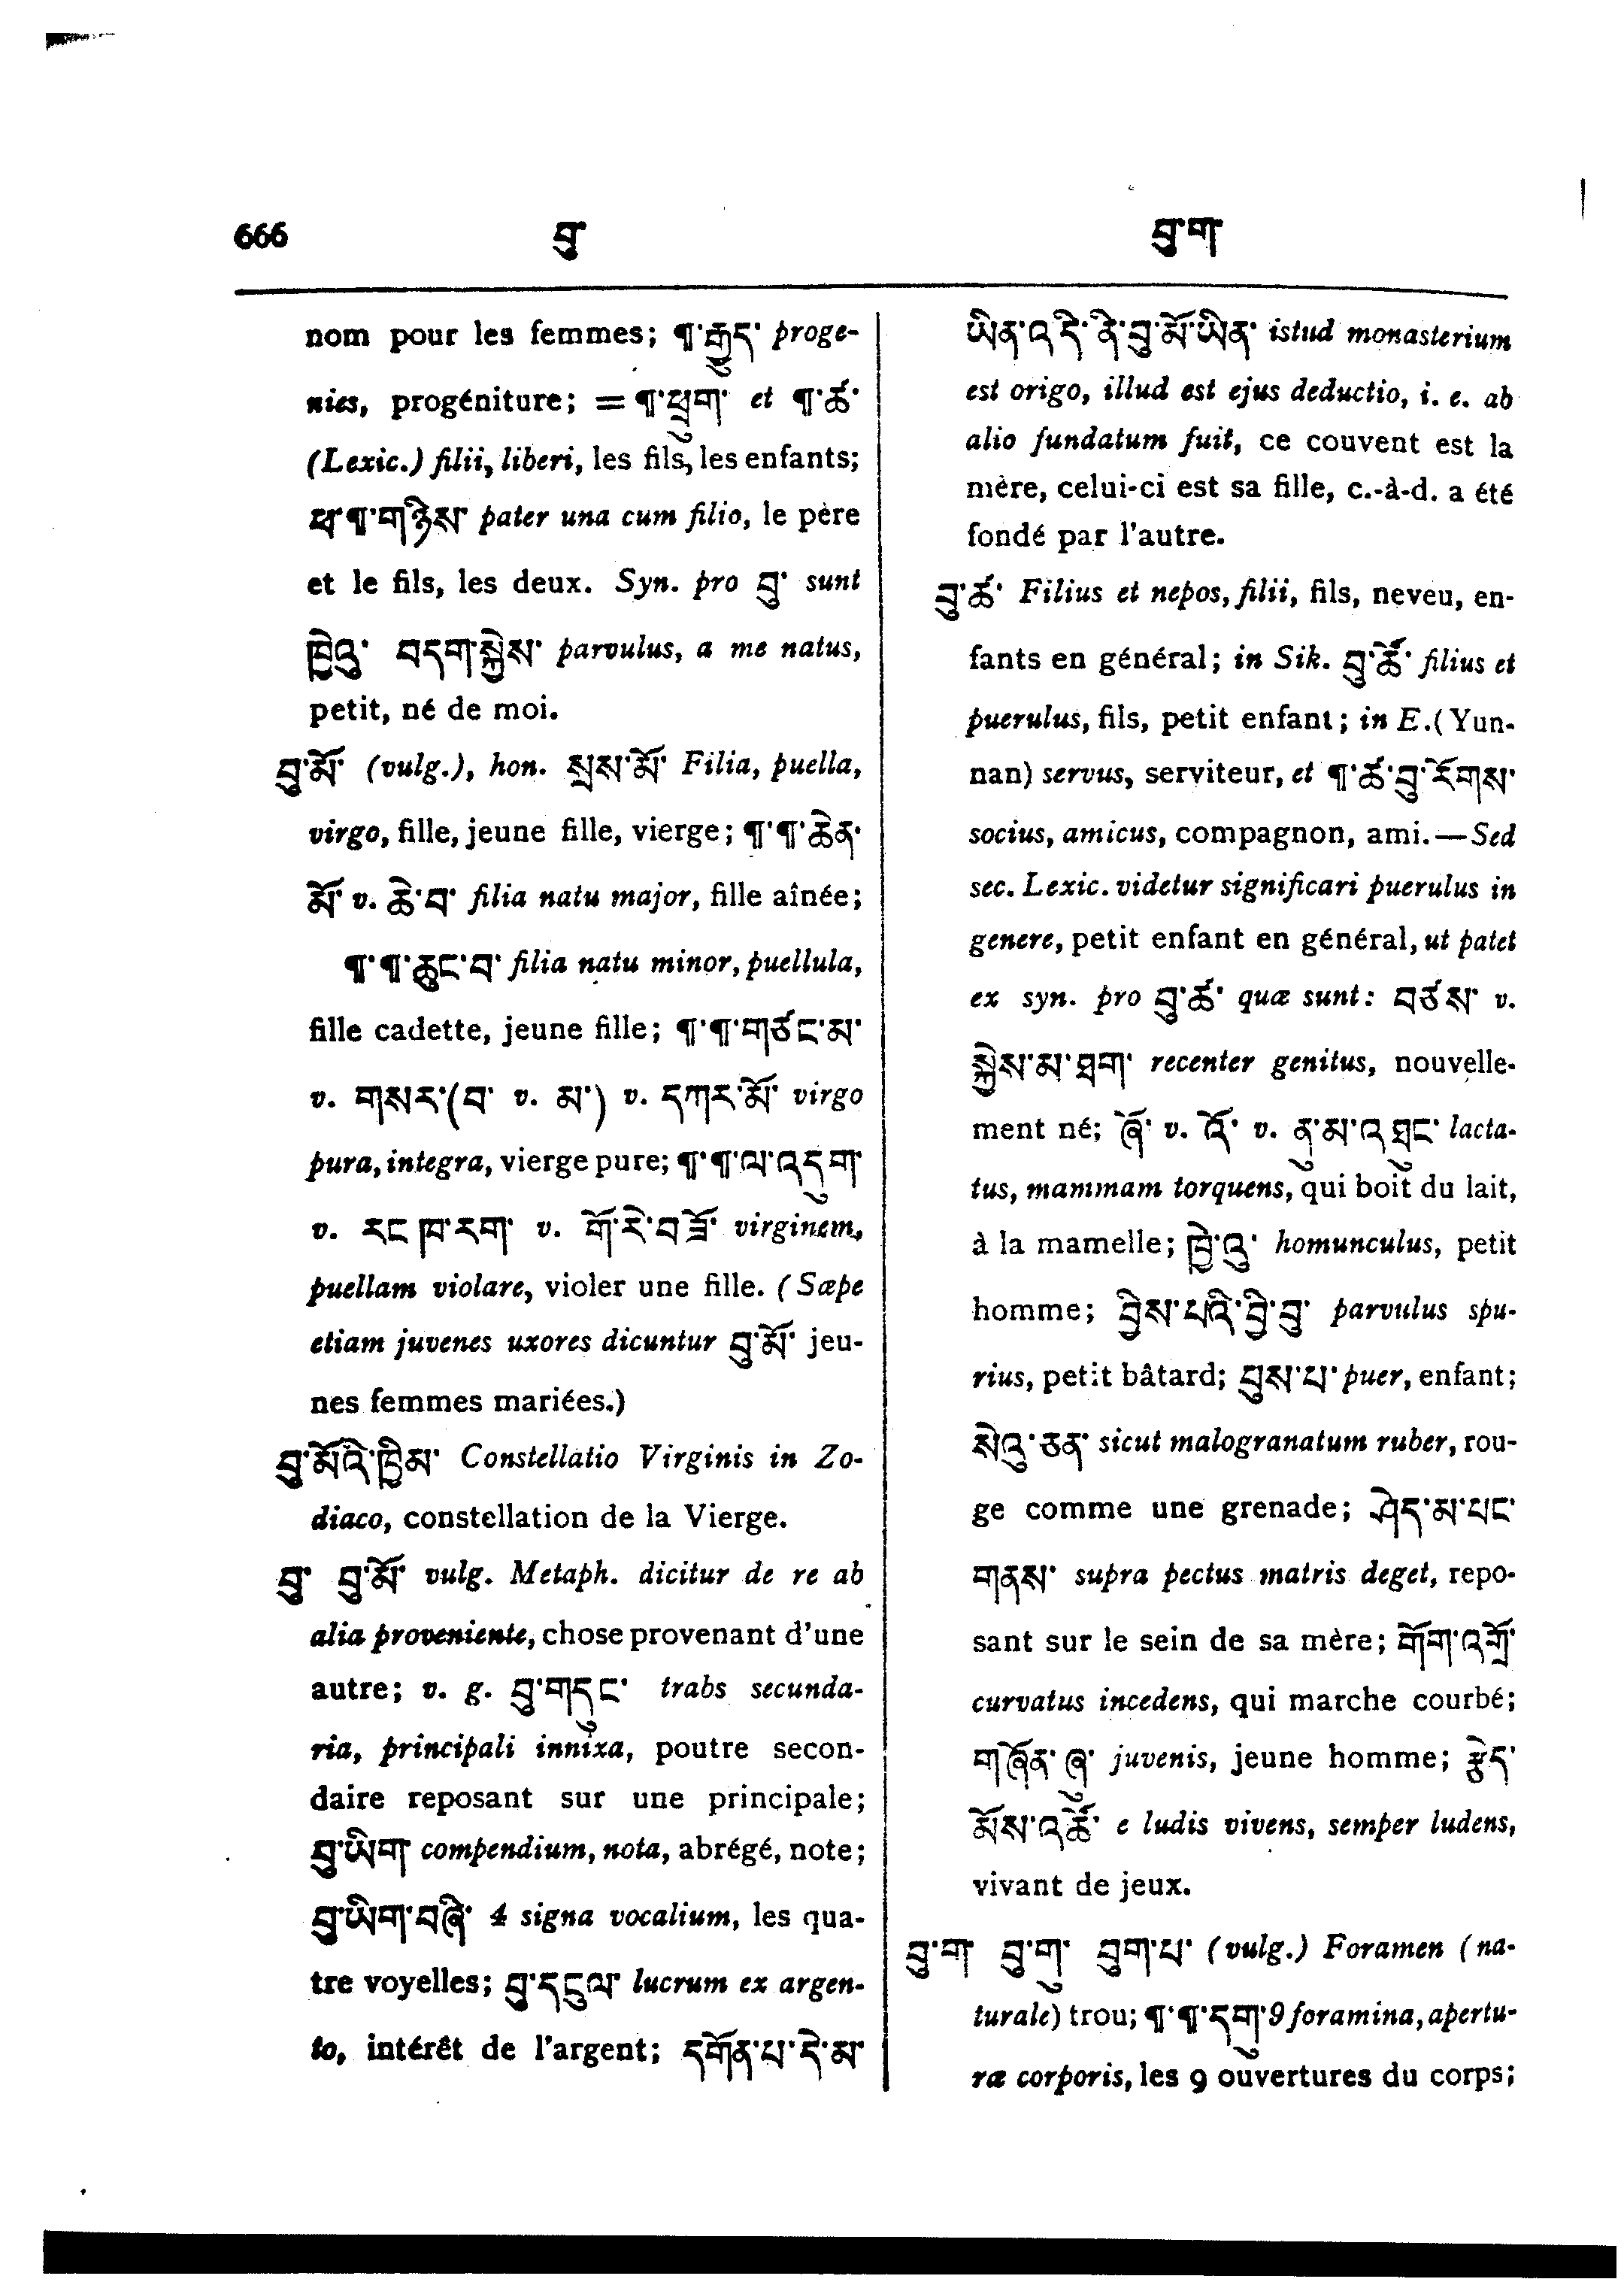 666 བུ་ བུ་ག་
nom pour les femmes; ¶་རྒྱུད་ proge-
nies, progéniture; = ¶་ཕྲུག་ et ¶་ཚ་
(Lexic.) filii, liberi, les fils, les enfants;
ཕ་¶་གཉིས་ pater una cum filio, le père
et le fils, les deux. Syn. pro བུ་ sunt
ཁྱེའུ་ བདག་སྐྱེས་ parvulus, a me natus,
petit, né de moi.
བུ་མོ་ (vulg.), hon. སྲས་མོ་ Filia, puella,
virgo, fille, jeune fille, vierge; ¶་¶་ཆེན་
མོ་ v. ཆེ་བ་ filia natu major, fille aînée;
¶་¶་ཆུང་བ་ filia natu minor, puellula,
fille cadette, jeune fille; ¶་¶་གཙང་མ་
v. གསར་(བ་ v. མ་) v. དཀར་མོ་ virgo
pura, integra, vierge pure; ¶་¶་ལ་འདུག་
v. རང ཁ་རག་ v. གོ་རེ་བཟོ་ virginem,
puellam violare, violer une fille. (Sæpe
etiam juvenes uxores dicuntur བུ་མོ་ jeu-
nes femmes mariées.)
བུ་མོའི་ཁྱིམ་ Constellatio Virginis in Zo-
diaco, constellation de la Vierge.
བུ་ བུ་མོ་ vulg. Metaph. dicitur de re ab
alia proveniente, chose provenant d'une
autre; v. g. བུ་གདུང་ trabs secunda-
ria, principali innixa, poutre secon-
daire reposant sur une principale;
བུ་ཡིག compendium, nota, abrégé, note;
བུ་ཡིག་བཞི་ 4 signa vocalium, les qua-
tre voyelles; བུ་དངུལ་ lucrum ex argen-
to, intérêt de l'argent; དགོན་པ་དེ་མ་
ཡིན་འདི་ནི་བུ་མོ་ཡིན་ istud monasterium
est origo, illud est ejus deductio, i. e. ab
alio fundatum fuit, ce couvent est la
mère, celui-ci est sa fille, c.-à-d. a été
fondé par l'autre.
བུ་ཚ་ Filius et nepos, filii, fils, neveu, en-
fants en général; in Sik. བུ་ཚོ་ filius et
puerulus, fils, petit enfant; in E. (Yun-
nan) servus, serviteur, et ¶་ཚ་བུ་རོགས་
socius, amicus, compagnon, ami.—Sed
sec. Lexic. videtur significari puerulus in
genere, petit enfant en général, ut patet
ex syn. pro བུ་ཚ་ quæ sunt: བཙས་ v.
སྐྱེས་མ་ཐག་ recenter genitus, nouvelle-
ment né; ཞོ་ v. འོ་ v. ནུ་མ་འཐུང་ lacta-
tus, mammam torquens, qui boit du lait,
à la mamelle; ཁྱེ་འུ་ homunculus, petit
homme; བྱིས་པའི་བྱི་བུ་ parvulus spu-
rius, petit bâtard; བུས་པ་ puer, enfant;
སེའུ་ཅན་ sicut malogranatum ruber, rou-
ge comme une grenade; ཤེད་མ་པང་
གནས་ supra pectus matris deget, repo-
sant sur le sein de sa mère; གོག་འགྲོ་
curvatus incedens, qui marche courbé;
གཞོན་ནུ་ juvenis, jeune homme; རྩེད་
མོས་འཚོ་ e ludis vivens, semper ludens,
vivant de jeux.
བུ་ག བུ་གུ་ བུག་པ་ (vulg.) Foramen (na-
turale) trou; ¶་¶་དགུ་ 9 foramina, apertu-
ræ corporis, les 9 ouvertures du corps;